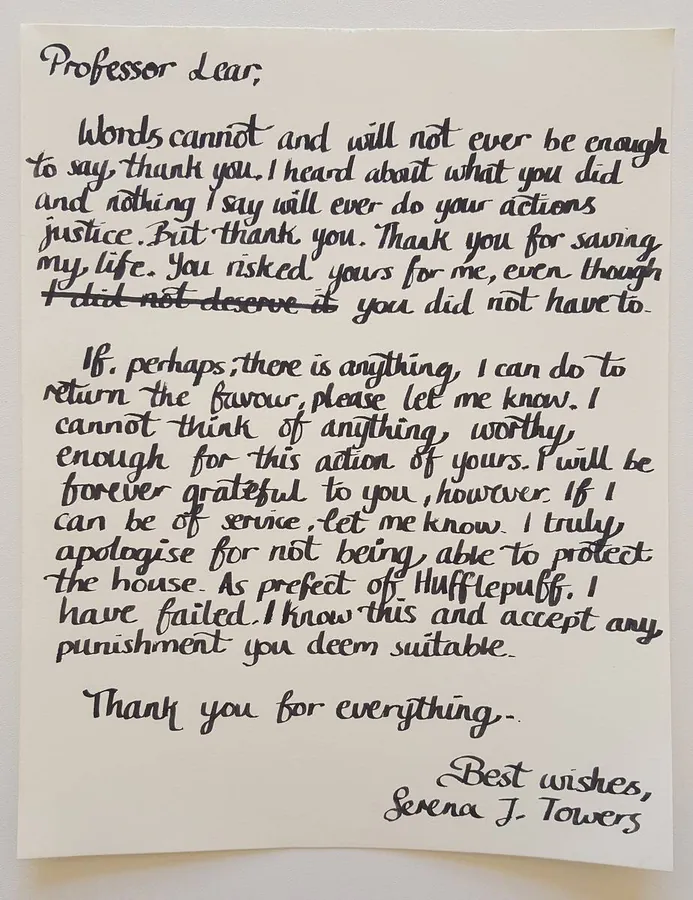 Professor Lear,
Words cannot and will not ever be enough
to say, thank you. I heard about what you did
and nothing I say will ever do your actions
justice. But thank you. Thank you for saving
my life. You risked yours for me, even though
I did not deserve it you did not have to.
If, perhaps, there is anything, I can do to
return the favour, please let me know. I
cannot think of anything, worthy,
enough for this action of yours. I will be
forever grateful to you, however. If I
can be of service, let me know. I truly
apologise for not being able to protect
the house. As prefect of Hufflepuff, I
have failed. I know this and accept any
punishment you deem suitable.
Thank you for everything.
Best wishes,
Serena J. Towers